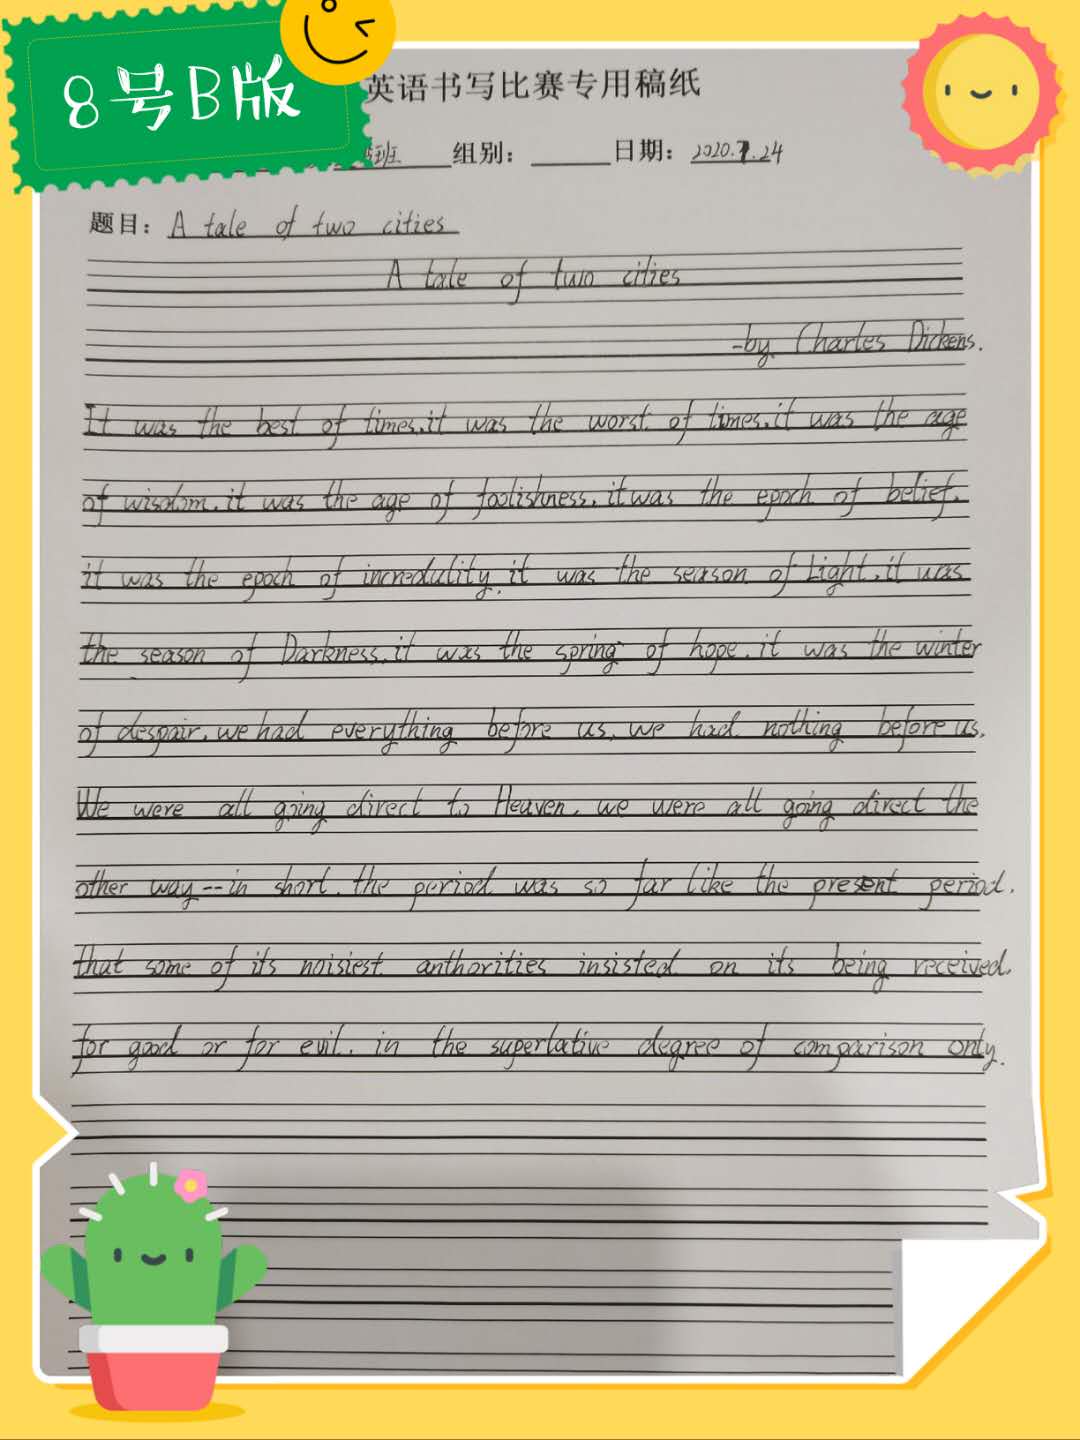 8号B版
英语书写比赛专用稿纸
班 组别: 日期: 2020.7.24
题目: A tale of two cities
A tale of two cities
-by Charles Dickens.
It was the best of times,it was the worst of times,it was the age
of wisdom,it was the age of foolishness,it was the epoch of belief,
it was the epoch of incredulity,it was the season of Light,it was
the season of Darkness,it was the spring of hope,it was the winter
of despair,we had everything before us,we had nothing before us.
We were all going direct to Heaven,we were all going direct the
other way--in short,the period was so far like the present period,
that some of its noisiest anthorities insisted on its being received,
for good or for evil,in the superlative degree of comparison only.